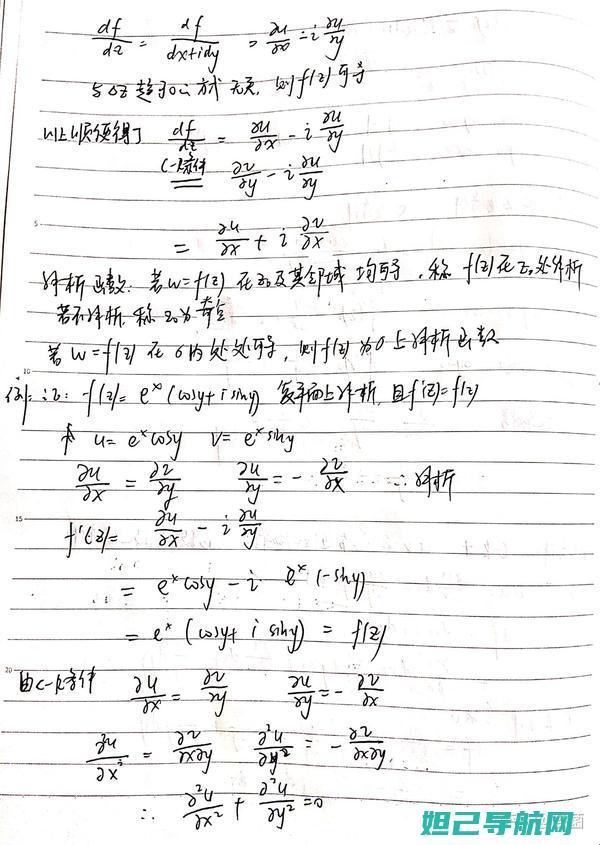 df/dz = df/(dx+idy) = ∂u/∂x - i ∂u/∂y
与Δz趋于0的方式无关, 则f(z)可导
以上顺便得了 df/dz = ∂u/∂x - i ∂u/∂y
C-R条件 ∂v/∂y - i ∂u/∂y
= ∂u/∂x + i ∂v/∂x
5
解析函数: 若w=f(z) 在z₀及其邻域 均可导, 称 f(z)在z₀处解析
若不解析, 称z₀为奇点
若w=f(z) 在σ内处处可导, 则f(z)为σ上解析函数
10
例: 证: f(z)= eˣ(cosy+isiny) 复平面上解析, 且f'(z)=f(z)
u= eˣcosy v= eˣsiny
∂u/∂x = ∂v/∂y ∂u/∂y = - ∂v/∂x ∴解析
15
f'(z)= ∂u/∂x - i ∂u/∂y
= eˣcosy - i eˣ(-siny)
= eˣ(cosy+ i siny) = f(z)
20
由C-R条件 ∂u/∂x = ∂v/∂y ∂u/∂y = - ∂v/∂x
∂²u/∂x² = ∂²v/∂x∂y ∂²u/∂y² = - ∂²v/∂x∂y
∴ ∂²u/∂x² + ∂²u/∂y² =0
妲己导航网